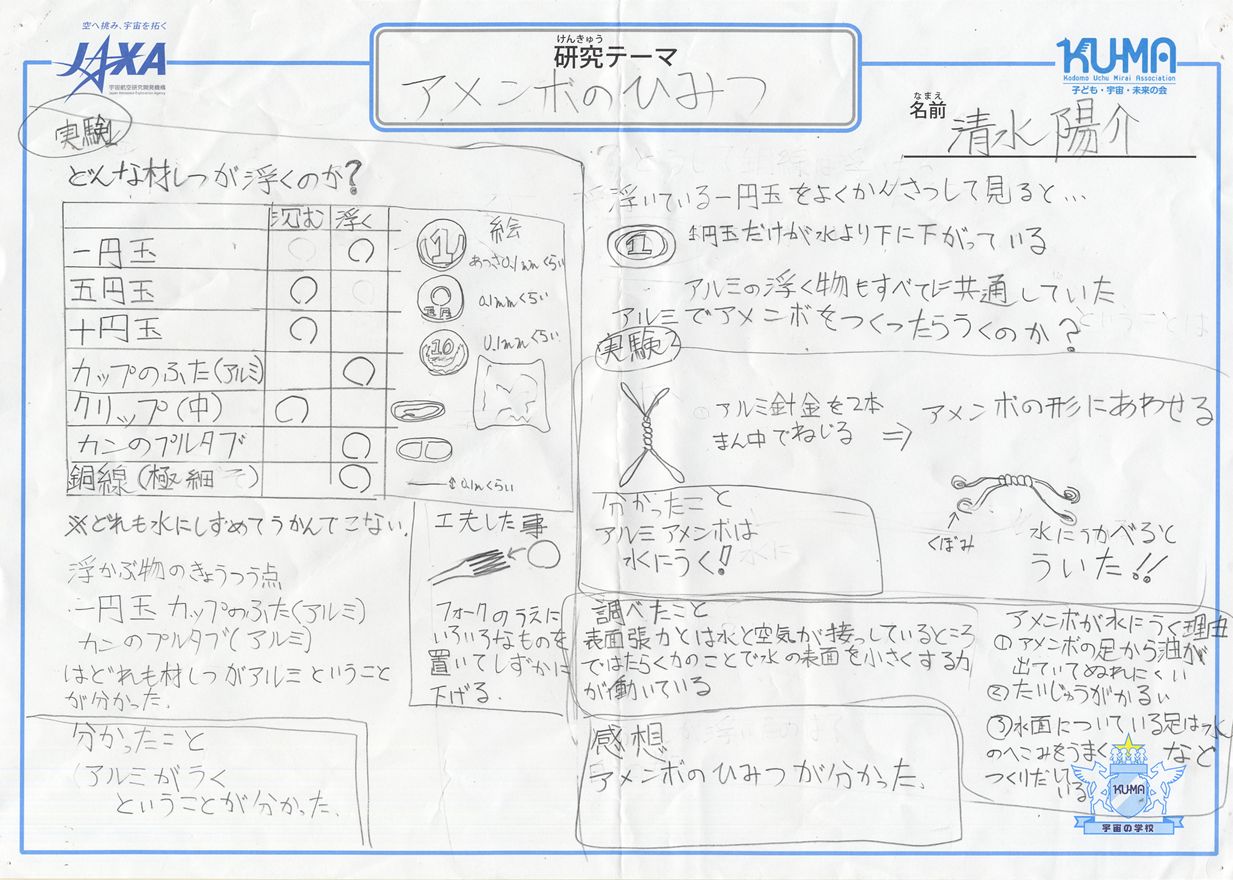 空へ挑み、宇宙を拓く
JAXA
宇宙航空研究開発機構
Japan Aerospace Exploration Agency
けんきゅう
研究テーマ
アメンボのひみつ
KU-MA
Kodomo Uchu Mirai Association
子ども・宇宙・未来の会
なまえ
名前
清水 陽介
実験1
どんな材しつが浮くのか?
沈む 浮く
一円玉 ○
五円玉 ○
十円玉 ○
カップのふた(アルミ) ○
クリップ(中) ○
カンのプルタブ ○
銅線(極細 ○
絵
1
あつさ0.1mmくらい
0.1mmくらい
10
0.1mmくらい
0.1mくらい
※どれも水にしずめてうかんでこない.
浮かぶ物のきょうつう点
・一円玉 カップのふた(アルミ)
カンのプルタブ(アルミ)
はどれも材しつがアルミということ
が分かった.
分かったこと
(アルミがうく
ということが分かった.
工夫した事
フォークのうえに
いろいろなものを
置いてしずかに
下げる.
浮いている一円玉をよくかんさつして見ると…
1
1円玉だけが水より下に下がっている
アルミの浮く物もすべてに共通していた
アルミでアメンボをつくったらうくのか?
実験2
① アルミ針金を2本
まん中でねじる
⇒
アメンボの形にあわせる
くぼみ
水にうかべると
ういた!!
分かったこと
アルミアメンボは
水にうく!
調べたこと
表面張力とは水と空気が接っしているところ
ではたらく力のことで水の表面を小さくする力
が働いている
アメンボが水にうく理由
①アメンボの足から油が
出ていてぬれにくい
②たいじゅうがかるい
③水面についている足は水
のへこみをうまく
つくりだして
いる
など
感想
アメンボのひみつが分かった.
KU-MA
宇宙の学校